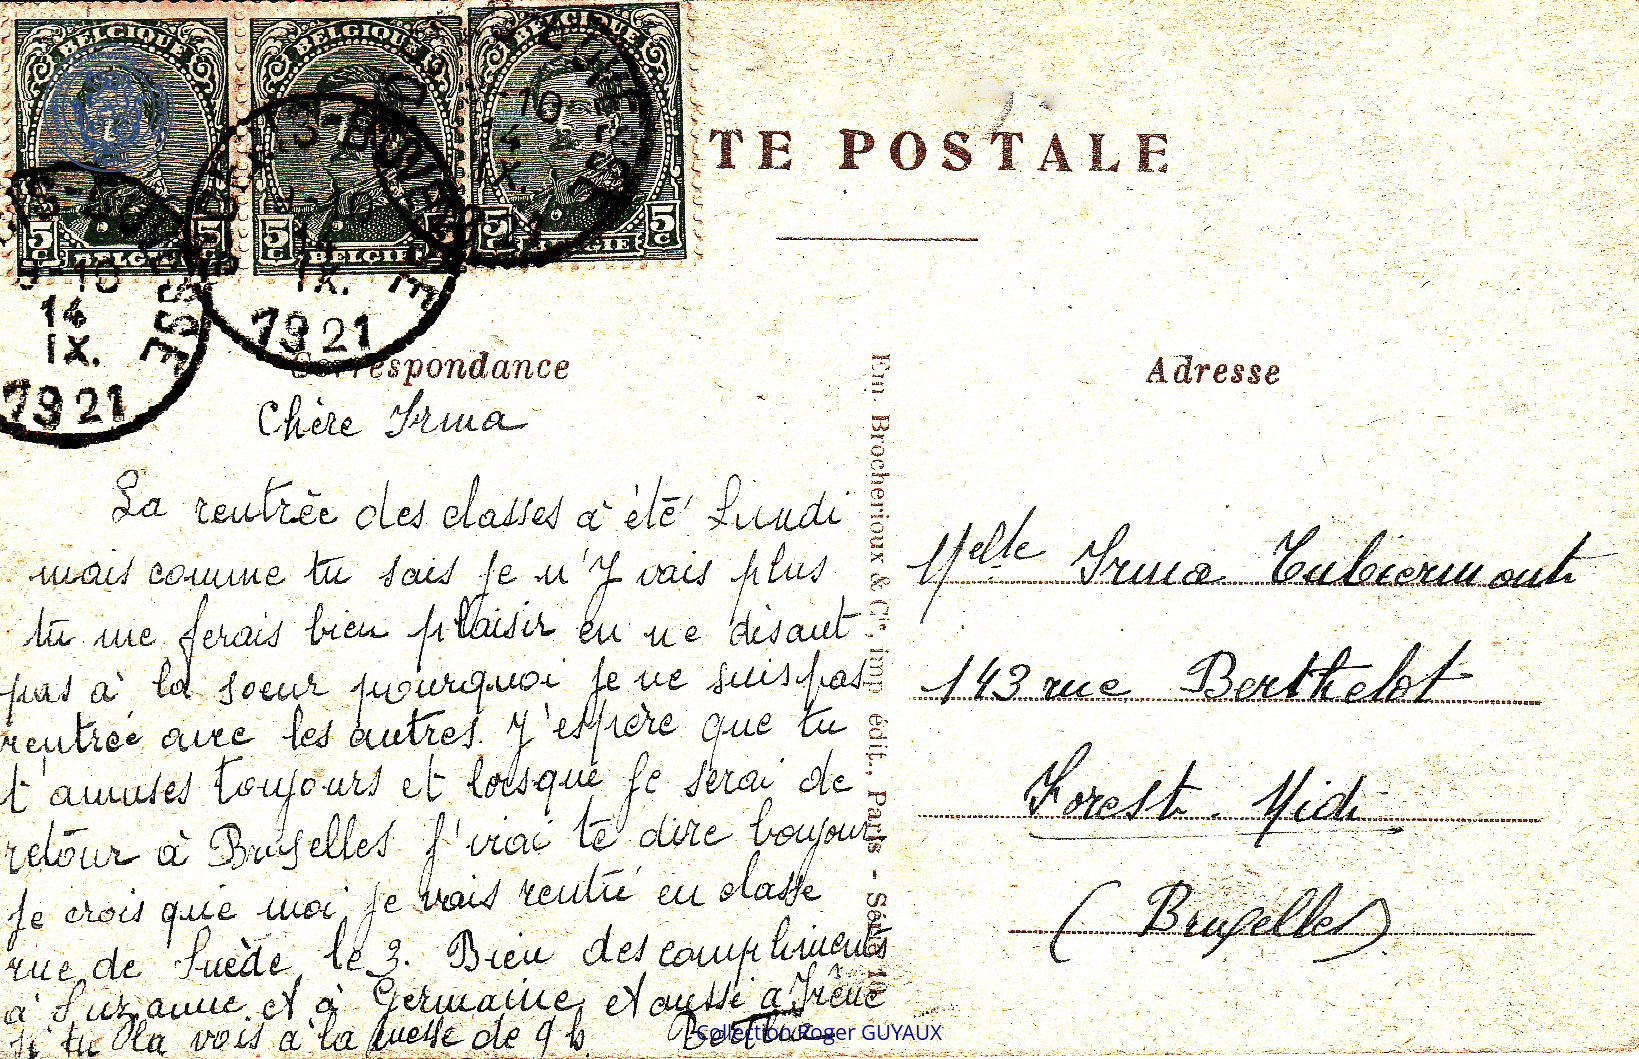 BELGIQUE BELGIQUE
5c 5c 5c 5c
BELGIE BELGIE
10
14
IX.
9-10
14
IX.
1921
14
IX.
1921
TE POSTALE
Correspondance
Adresse
Chère Irma
La rentrée des classes a été Lundi
mais comme tu sais je n'y vais plus
tu me ferais bien plaisir en ne disant
pas à la soeur pourquoi je ne suis pas
rentrée avec les autres. J'espère que tu
t'amuses toujours et lorsque je serai de
retour à Bruxelles j'irai te dire bonjour
je crois que moi je vais rentré en classe
rue de Suède le 3. Bien des compliments
à Suzanne et à Germaine et aussi a Irène
si tu la vois à la messe de 9 h. Bertha
Em. Brocherioux & Cie, imp. édit., Paris - Série 10
Melle Irma Tubiermont
143 rue Berthelot
Forest-Midi
(Bruxelles)
Collection Roger GUYAUX